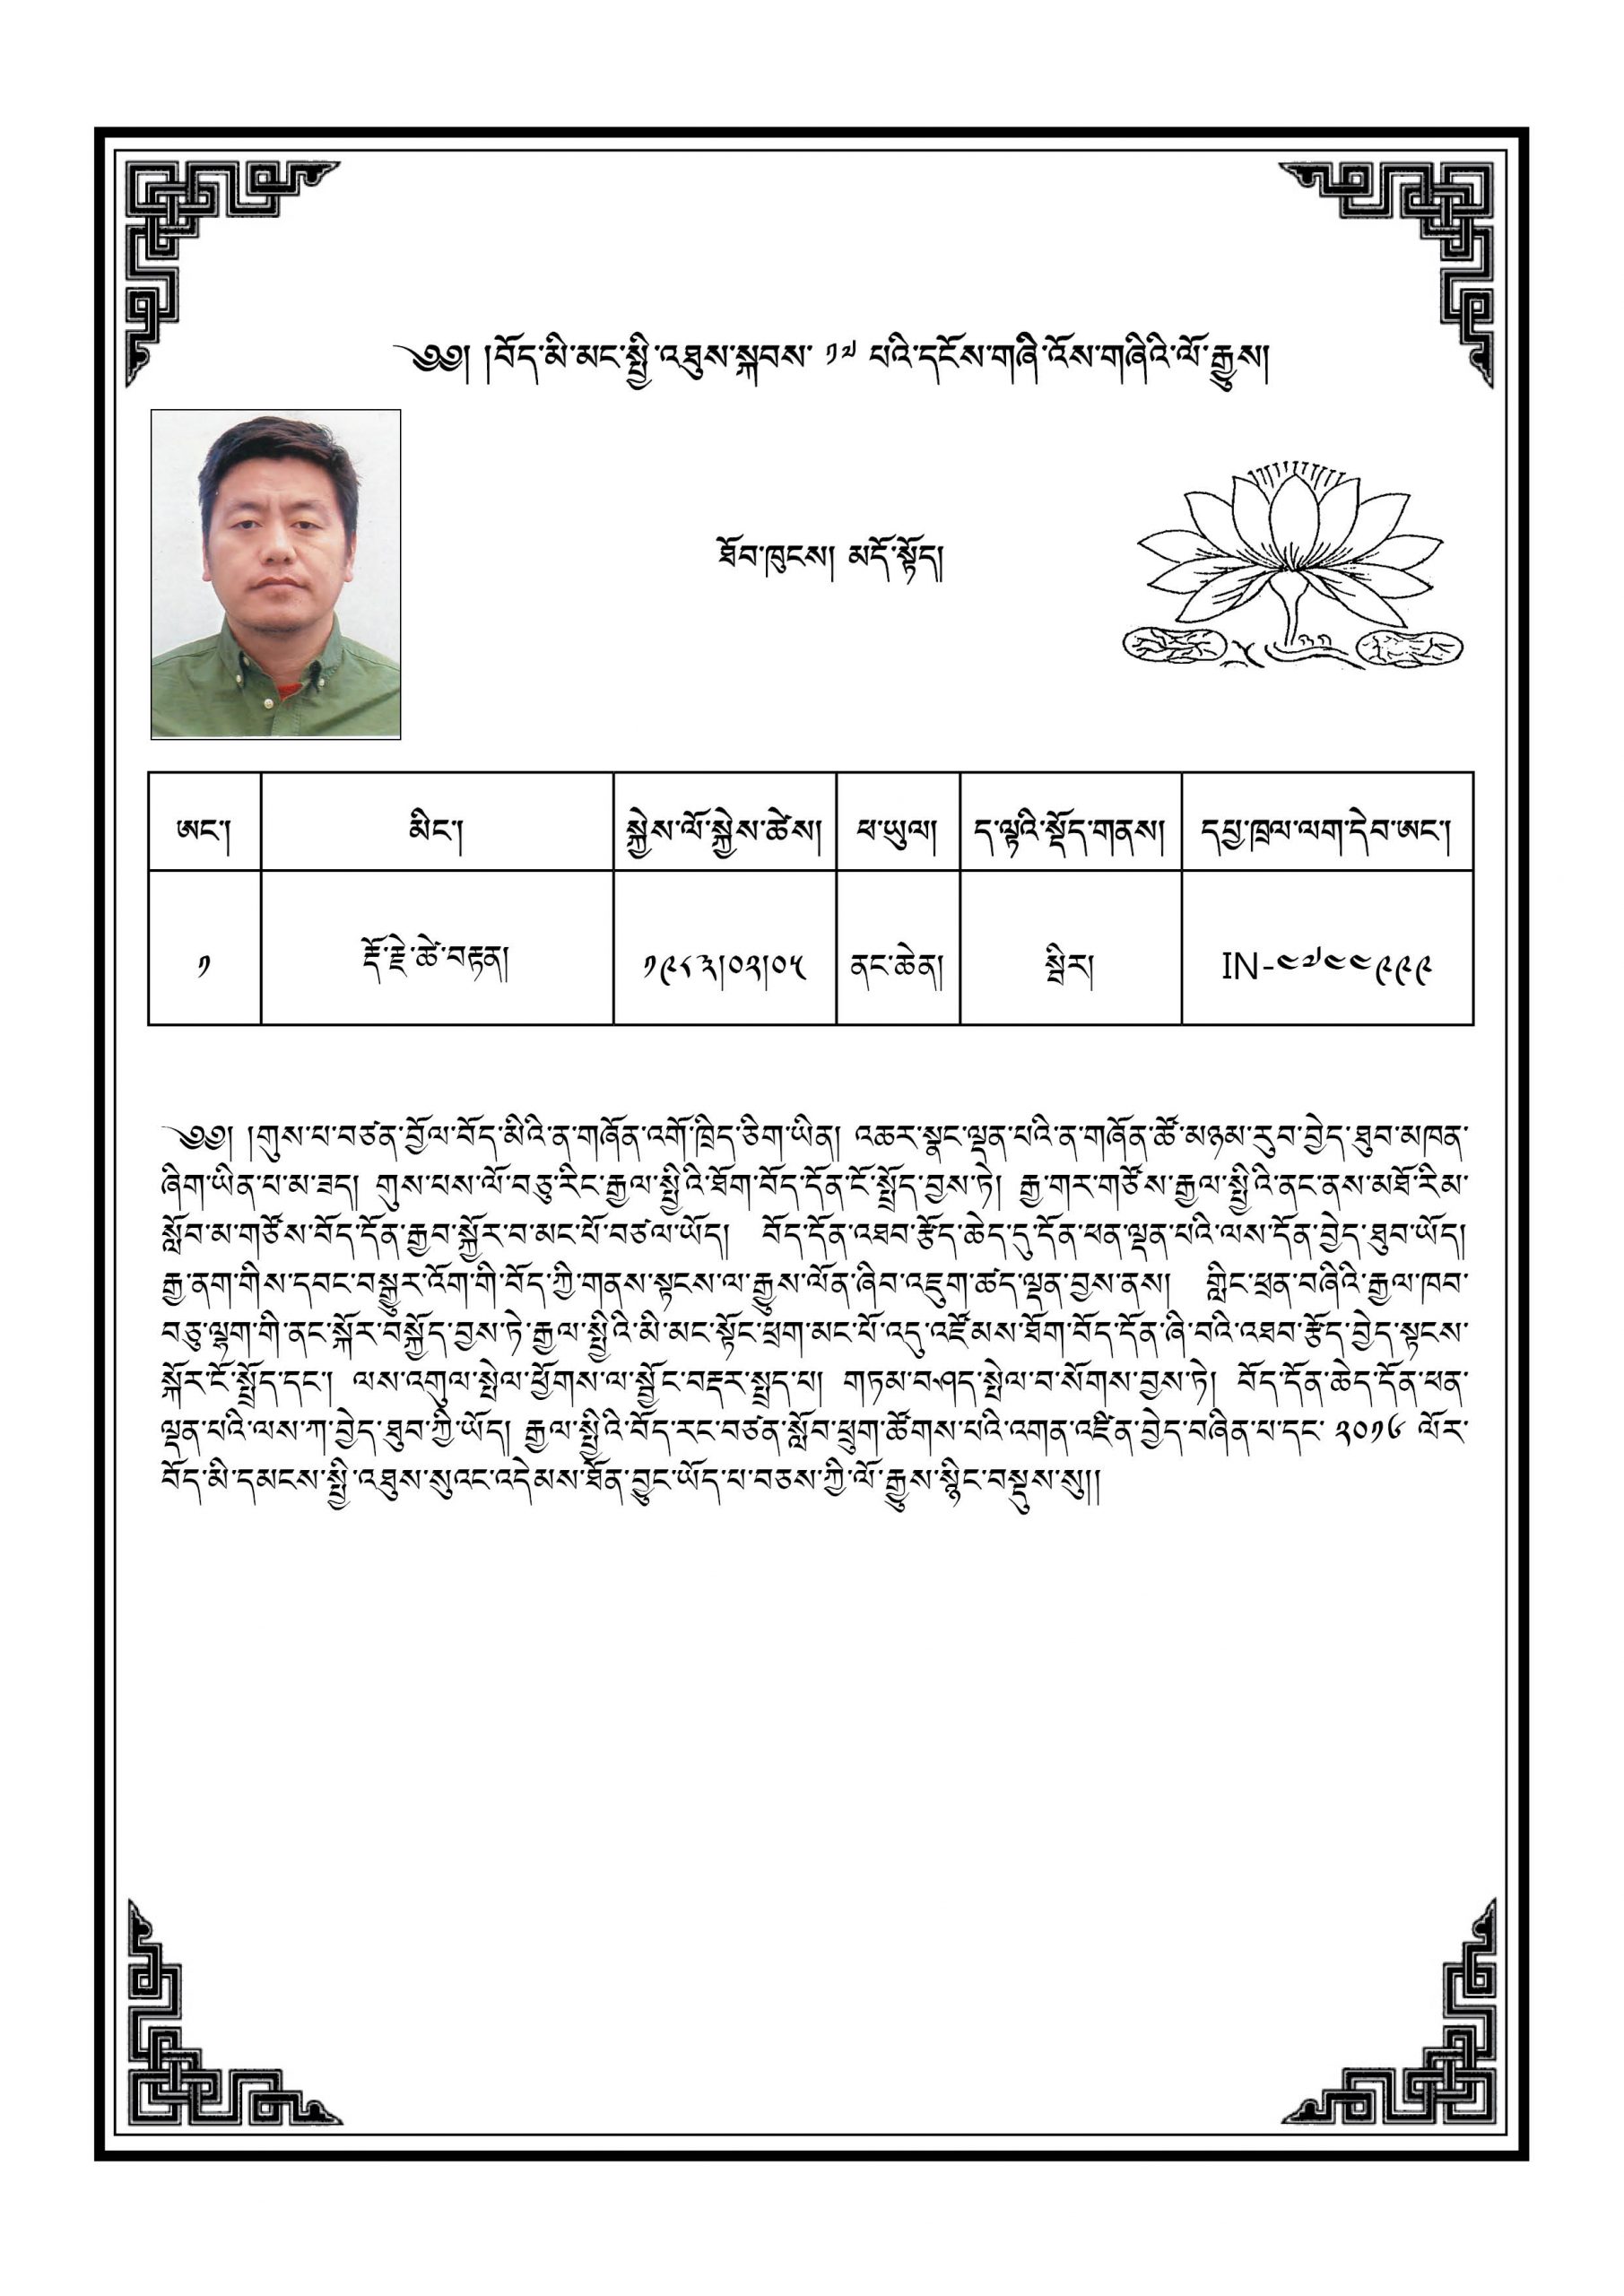 ༄༅། །བོད་མི་མང་སྤྱི་འཐུས་སྐབས་ ༡༧ པའི་དངོས་གཞི་འོས་གཞིའི་ལོ་རྒྱུས།
ཐོབ་ཁུངས། མདོ་སྟོད།
ཨང་། མིང་། སྐྱེས་ལོ་སྐྱེས་ཚེས། ཕ་ཡུལ། ད་ལྟའི་སྡོད་གནས། དཔྱ་ཁྲལ་ལག་དེབ་ཨང་།
༡ རྡོ་རྗེ་ཚེ་བརྟན། ༡༩༨༣།༠༢།༠༥ ནང་ཆེན། སྦིར། IN-༤༧༤༤༩༩༩
༄༅། །གུས་པ་བཙན་བྱོལ་བོད་མིའི་ན་གཞོན་འགོ་ཁྲིད་ཅིག་ཡིན། འཆར་སྣང་ལྡན་པའི་ན་གཞོན་ཚོ་མཉམ་རུབ་བྱེད་ཐུབ་མཁན་
ཞིག་ཡིན་པ་མ་ཟད། གུས་པས་ལོ་བཅུ་རིང་རྒྱལ་སྤྱིའི་ཐོག་བོད་དོན་ངོ་སྤྲོད་བྱས་ཏེ། རྒྱ་གར་གཙོས་རྒྱལ་སྤྱིའི་ནང་ནས་མཐོ་རིམ་
སློབ་མ་གཙོས་བོད་དོན་རྒྱབ་སྐྱོར་བ་མང་པོ་བཙལ་ཡོད། བོད་དོན་འཐབ་རྩོད་ཆེད་དུ་དོན་ཕན་ལྡན་པའི་ལས་དོན་བྱེད་ཐུབ་ཡོད།
རྒྱ་ནག་གིས་དབང་བསྒྱུར་འོག་གི་བོད་ཀྱི་གནས་སྟངས་ལ་རྒྱུས་ལོན་ཞིབ་འཇུག་ཚད་ལྡན་བྱས་ནས། གླིང་ཕྲན་བཞིའི་རྒྱལ་ཁབ་
བཅུ་ལྷག་གི་ནང་སྐོར་བསྐྱོད་བྱས་ཏེ་རྒྱལ་སྤྱིའི་མི་མང་སྟོང་ཕྲག་མང་པོ་འདུ་འཛོམས་ཐོག་བོད་དོན་ཞི་བའི་འཐབ་རྩོད་བྱེད་སྟངས་
སྐོར་ངོ་སྤྲོད་དང་། ལས་འགུལ་སྤེལ་ཕྱོགས་ལ་སྦྱོང་བརྡར་སྤྲད་པ། གཏམ་བཤད་སྤེལ་བ་སོགས་བྱས་ཏེ། བོད་དོན་ཆེད་དོན་ཕན་
ལྡན་པའི་ལས་ཀ་བྱེད་ཐུབ་ཀྱི་ཡོད། རྒྱལ་སྤྱིའི་བོད་རང་བཙན་སློབ་ཕྲུག་ཚོགས་པའི་འགན་འཛིན་བྱེད་བཞིན་པ་དང་ ༢༠༡༦ ལོར་
བོད་མི་དམངས་སྤྱི་འཐུས་སུའང་འདེམས་ཐོན་བྱུང་ཡོད་པ་བཅས་ཀྱི་ལོ་རྒྱུས་སྙིང་བསྡུས་སུ།།